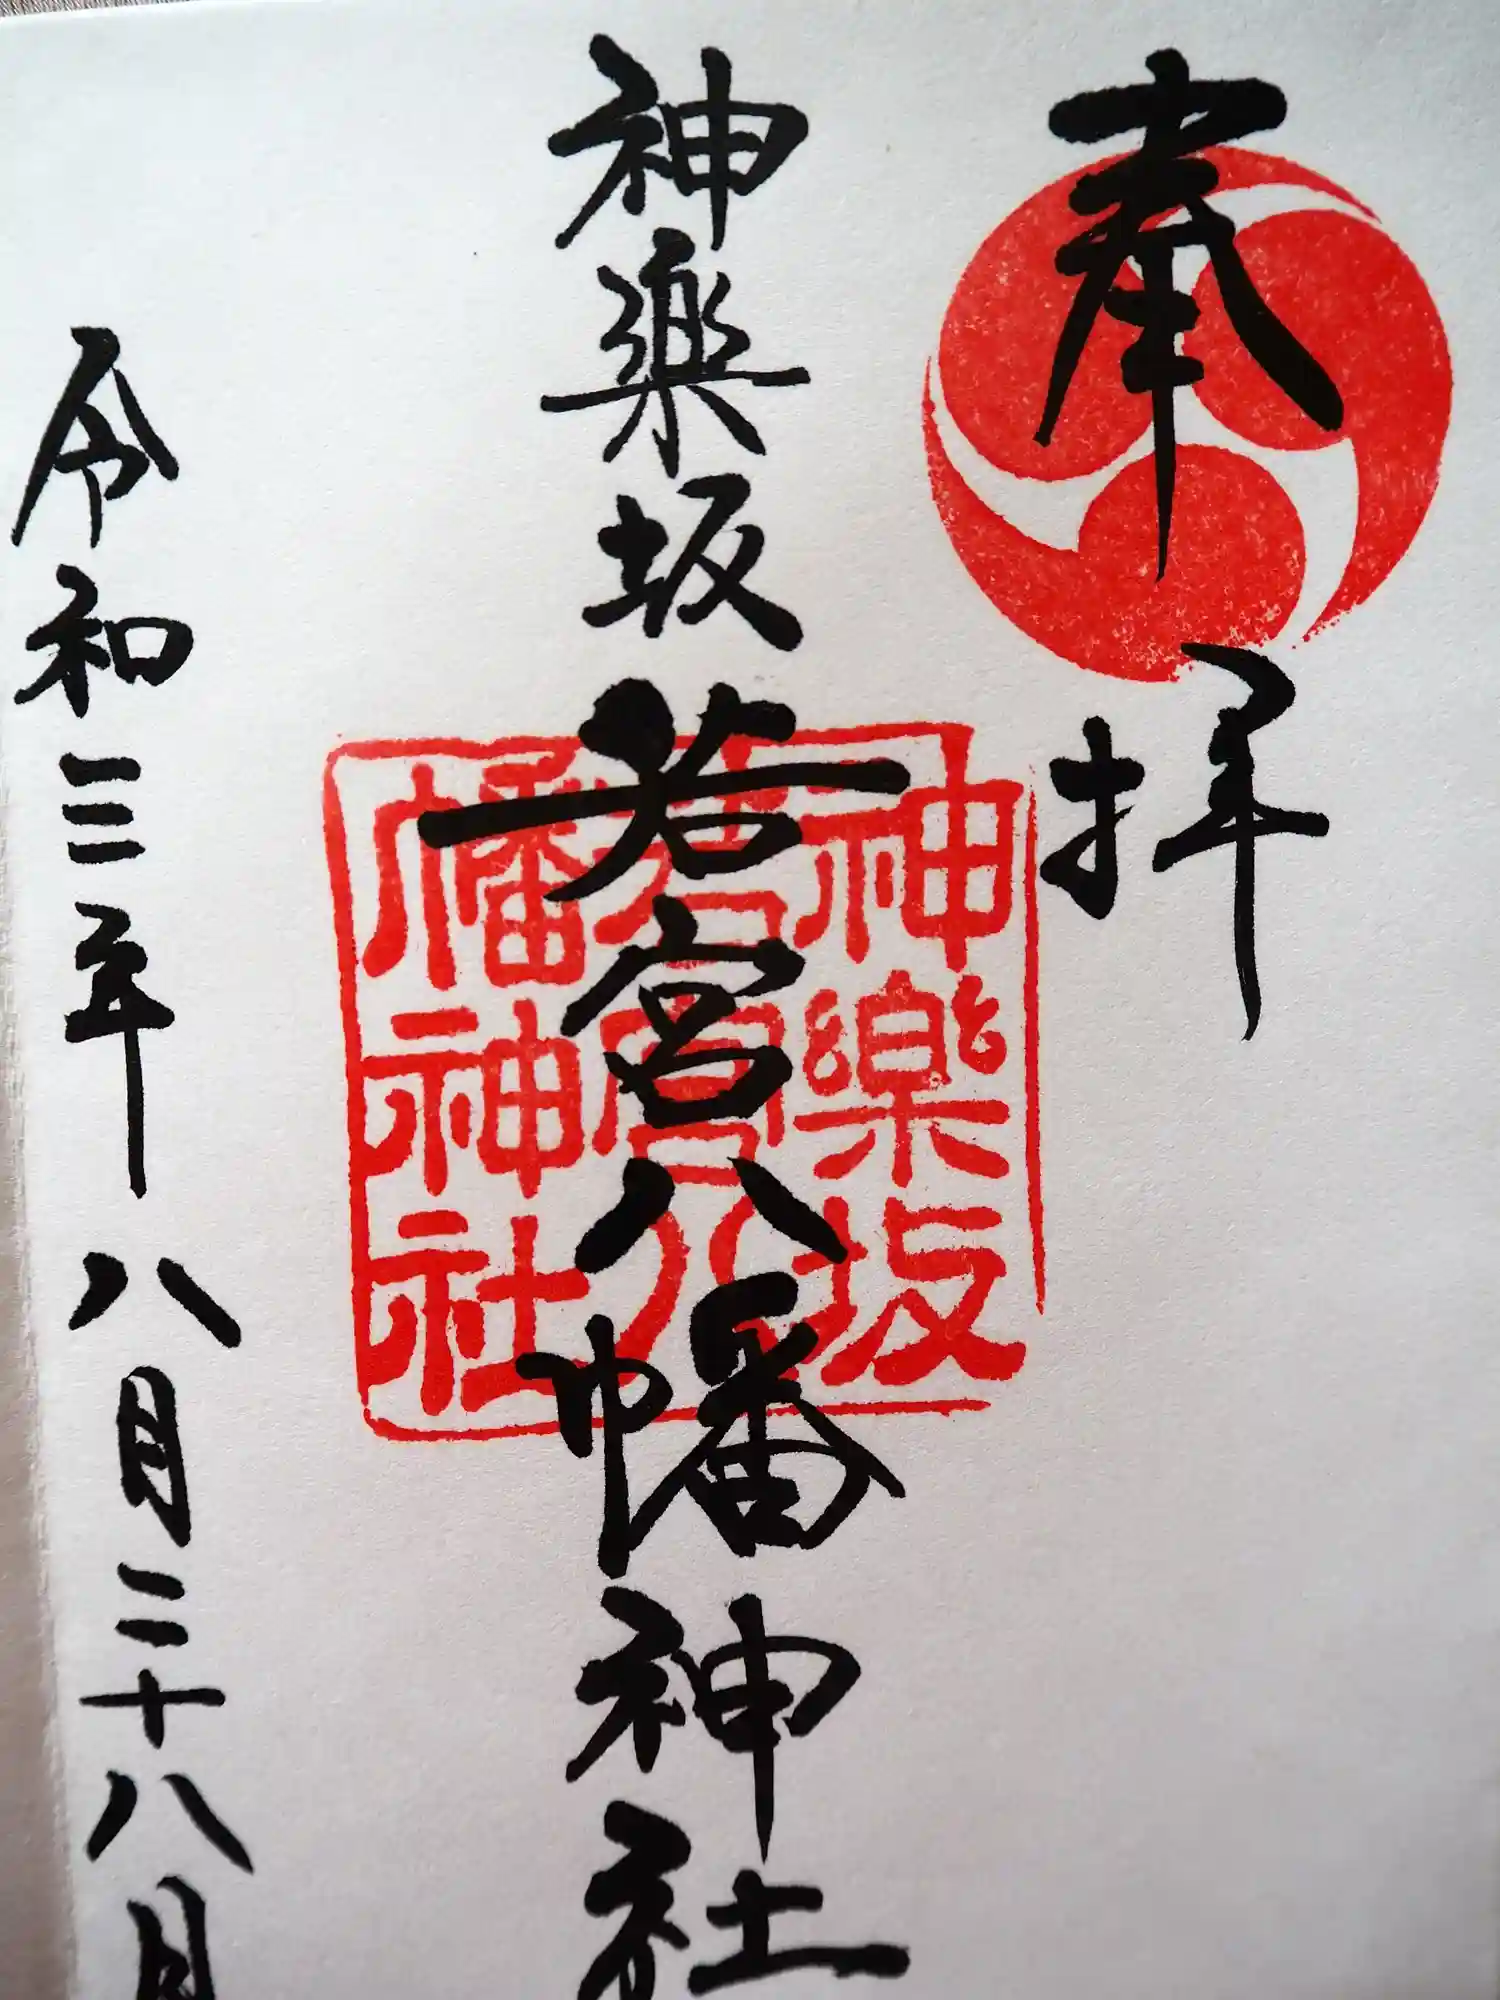 奉拝
神楽坂若宮八幡神社
神樂坂
若宮八
幡神社
令和三年八月二十八日